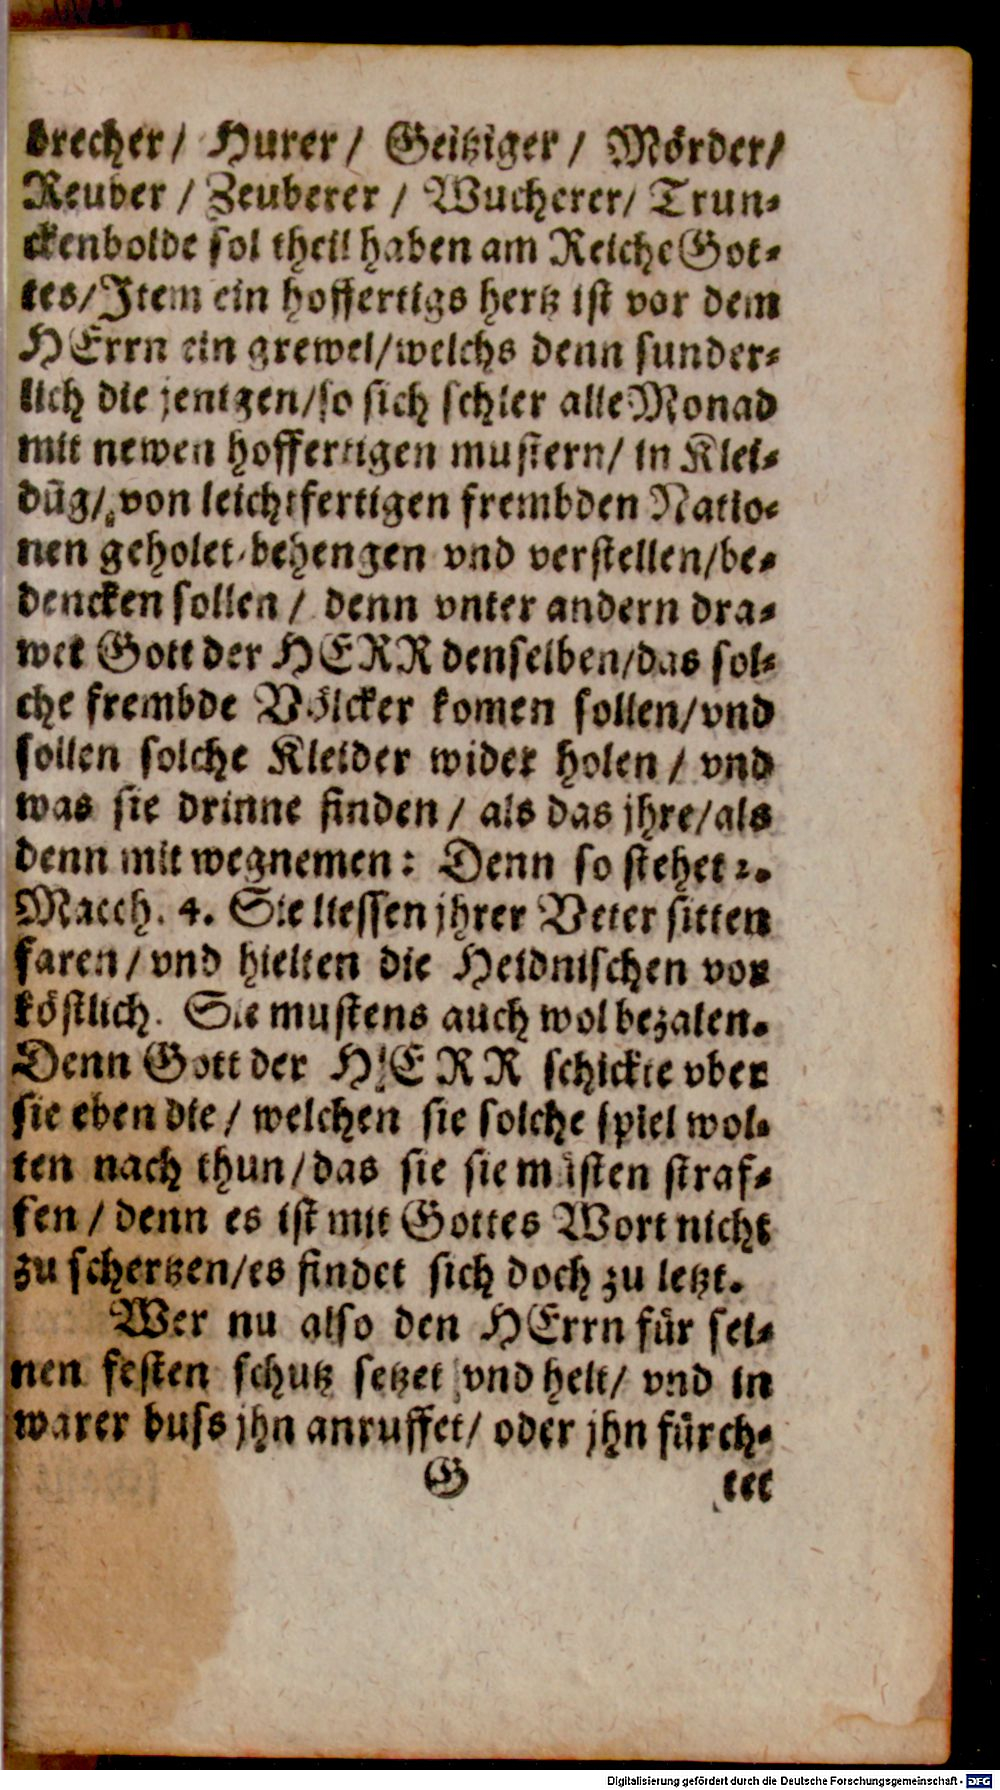 brecher / Hurer / Geitziger / Mörder /
Reuber / Zeuberer / Wucherer / Trun-
ckenbolde sol theil haben am Reiche Got-
tes / Item ein hoffertigs hertz ist vor dem
HErrn ein grewel / welchs denn sunder-
lich die jenigen / so sich schier alle Monad
mit newen hoffertigen mustern / in Klei-
dūg / von leichtfertigen frembden Natio-
nen geholet / behengen vnd verstellen / be-
dencken sollen / denn vnter andern dra-
wet Gott der HERR denselben / das sol-
che frembde Völcker komen sollen / vnd
sollen solche Kleider wider holen / vnd
was sie drinne finden / als das jhre / als
denn mit wegnemen: Denn so stehet 2.
Macch. 4. Sie liessen jhrer Veter sitten
faren / vnd hielten die Heidnischen vor
köstlich. Sie mustens auch wol bezalen.
Denn Gott der HERR schickte vber
sie eben die / welchen sie solche spiel wol-
ten nach thun / das sie sie müsten straf-
fen / denn es ist mit Gottes Wort nicht
zu schertzen / es findet sich doch zu letzt.
Wer nu also den HErrn für sei-
nen festen schutz setzet vnd helt / vnd in
warer buss jhn anruffet / oder jhn fürch-
G tet
Digitalisierung gefördert durch die Deutsche Forschungsgemeinschaft - DFG